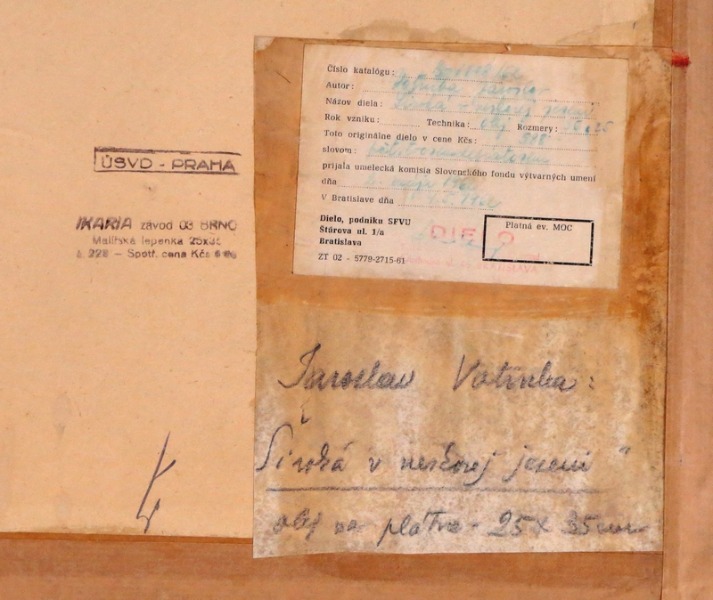 ÚSVD - PRAHA
IKARIA závod 03 BRNO
Malířská lepenka 25x35
č. 228 — Spotř. cena Kčs
Číslo katalógu:
Autor: Votruba Jaroslav
Názov diela: Široká v neskorej jeseni
Rok vzniku: Technika: olej Rozmery:
Toto originálne dielo v cene Kčs:
slovom:
prijala umelecká komisia Slovenského fondu výtvarných umení
dňa
V Bratislave dňa
Dielo, podniku SFVU
Štúrova ul. 1/a
Bratislava
ZT 02 - 5779-2715-61
Platná ev. MOC
DIELO
Jaroslav Votruba:
Široká v neskorej jeseni "
olej na plátne - 25 x 35 cm